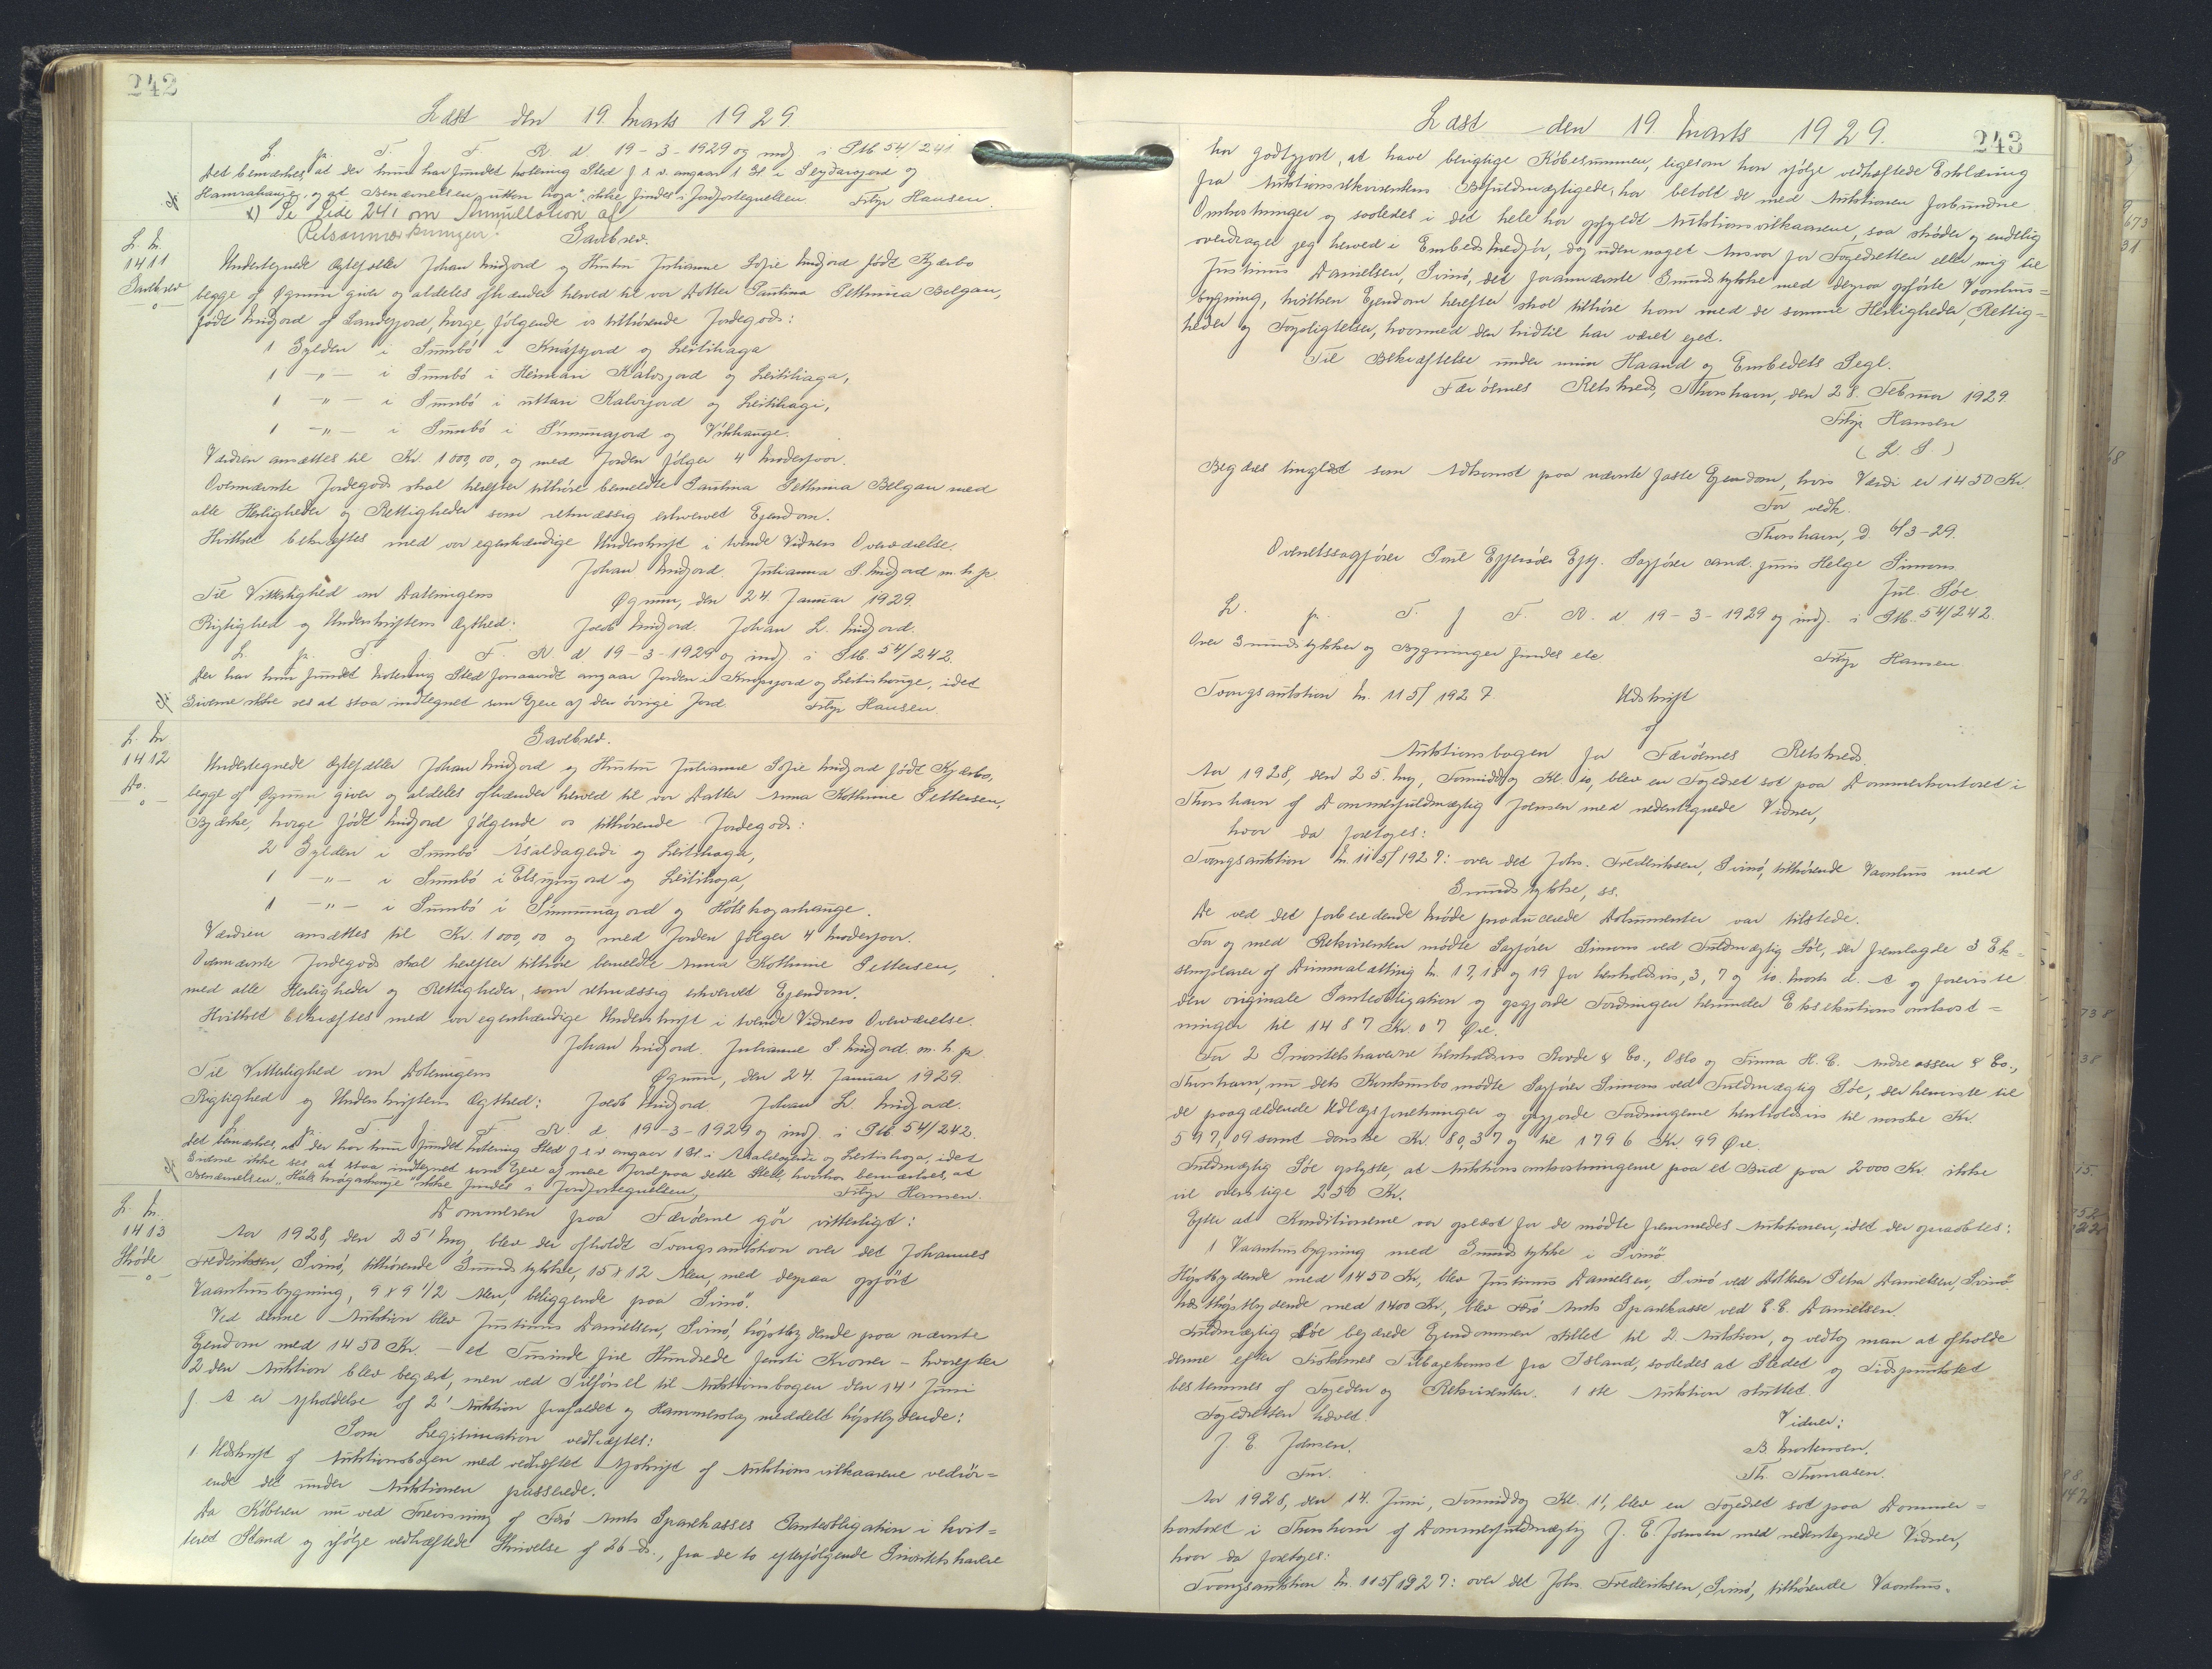 242
Læst den 19. Marts 1929.
L. p. T. f. F. R. d. 19-3-1929 og indf. i Ptb 54/241
Det bemærkes at der kun har fundet Notering Sted f. s. v. angaar 1 Gl. i
Hamrahauge, og at Benævnelsen "uttan haga" ikke findes i Jordfortegnelsen. Filip Hansen.
x) Se Side 241 om Annullation af
Retsanmærkningen!
Gavebrev.
L. Nr.
1411
Gavebrev
Undertegnede Ægtefæller Johan Midjord og Hustru Julianne Sofie Midjord født Kjærbo
begge af Øgnum giver og aldeles afhænder herved til vor Datter Paulina Pethrina Belgau,
født Midjord af Sandefjord, Norge, følgende os tilhørende Jordegods:
1 Gylden i Sumbø i Knafsjord og Leitishaga
1 -"- i Sumbø i Heimari Kálvsjord og Leitishaga,
1 -"- i Sumbø i uttari Kalvsjord og Leitishagi,
1 -"- i Sumbø i Símunajord og Vikhauge.
Værdien ansættes til Kr. 1000,00, og med Jorden følger 4 Moderfaar.
Ovennævnte Jordegods skal herefter tilhøre bemeldte Paulina Pethrina Belgau med
alle Herligheder og Rettigheder som retmæssig erhvervet Ejendom.
Hvilket bekræftes med vor egenhændige Underskrift i tvende Vidners Overværelse.
Johan Midjord. Julianna S. Midjord m. h. p.
Til Vitterlighed om Dateringens Øgnum, den 24. Januar 1929.
Rigtighed og Underskriftens Ægthed: Jacob Midjord. Johan L. Midjord.
L. p. T. f. F. R. d 19-3-1929 og indf. i Ptb. 54/242.
Der har kun fundet Notering Sted forsaavidt angaar Jorden i Knafsjord og Leitishauge, idet
Giverne ikke ses at staa indtegnet som Ejere af den øvrige Jord. Filip Hansen.
Gavebrev.
L. Nr.
1412
Do.
Undertegnede Ægtefæller Johan Midjord og Hustru Julianne Sofie Midjord født Kjærbo,
begge af Øgnum giver og aldeles afhænder herved til vor Datter Anna Kathrine Pettersen,
Bjerke, Norge født Midjord følgende os tilhørende Jordegods:
2 Gylden i Sumbø Asaldagerdi og Leitishaga,
1 -"- i Sumbø i og Leitishaga,
1 -"- i Sumbø i Símunajord og Hólskrogarhauge.
Værdien ansættes til Kr. 1000,00 og med Jorden følger 4 Moderfaar.
Ovennævnte Jordegods skal herefter tilhøre bemeldte Anna Kathrine Pettersen,
med alle Herligheder og Rettigheder, som retmæssig erhvervet Ejendom.
Hvilket bekræftes med vor egenhændige Underskrift i tvende Vidners Overværelse.
Johan Midjord. Julianne S. Midjord. m. h. p.
Til Vitterlighed om Dateringens Øgnum, den 24. Januar 1929.
Rigtighed og Underskriftens Ægthed: Jacob Midjord Johan L. Midjord.
L. p. T. f. F. R. d. 19-3-1929 og indf. i Ptb 54/242.
Det bemærkes, at der har kun fundet Notering Sted f. s. v. angaar 1 Gl. i Asaldagerdi og Leitishaga, idet
Giverne ikke ses at staa indtegnet som Ejere af mere Jord paa dette Sted, hvorhos bemærkes, at
Benævnelsen "Hólskrógarhauje" ikke findes i Jordfortegnelsen. Filip Hansen.
L. Nr.
1413
Skøde
Dommeren paa Færøerne gør vitterligt:
Aar 1928, den 25' Maj blev der afholdt Tvangsauktion over det Johannes
Frederiksen, Svinø, tilhørende Grundstykke, 15 x 12 Alen, med derpaa opført
Vaanhusbygning, 9 x 9 1/2 Alen, beliggende paa Svinø.
Ved denne Auktion blev Justinus Danielsen, Svinø, højstbydende paa nævnte
Ejendom med 1450 Kr. - et Tusinde fire Hundrede femti Kroner - hvorefter
2den Auktion blev begært, men ved Tilførsel til Auktionsbogen den 14' Juni
f. A er Afholdelse af 2' Auktion frafaldet og Hammerslag meddelt højstbydende:
Som Legitimation vedhæftes:
1. Udskrift af Auktionsbogen med vedhæftet Afskrift af Auktionsvilkaarene vedrør-
ende det under Auktionen passerede.
Da Køberen nu ved Forevisning af Færø Amts Sparekasses Panteobligation i kvit-
teret Stand og ifølge vedhæftede Skrivelse af 26 ds., fra de to efterfølgende Prioritetshavere
243
Læst den 19. Marts 1929.
har godtgjort, at have berigtige Købesummen, ligesom han ifølge vedhæftede Erklæring
fra Auktionsrekvirentens Befuldmægtigede, har betalt de med Auktionen forbundne
Omkostninger og saaledes i det hele har opfyldt Auktionsvilkaarene, saa skøder og endelig
overdrager jeg herved i Embeds Medfør, dog uden noget Ansvar for Fogedretten eller mig til
Justinus Danielsen, Svinø, det forannævnte Grundstykke med derpaa opførte Vaanhus-
bygning, hvilken Ejendom herefter skal tilhøre ham med de samme Herligheder, Rettig-
heder og Forpligtelser, hvormed den hidtil har været ejet.
Til Bekræftelse under min Haand og Embedets Segl.
Færøernes Retskreds, Thorshavn, den 28. Februar 1929.
Filip Hansen
( L. S. )
Begæres tinglæst som Adkomst paa nævnte faste Ejendom, hvis Værdi er 1450 Kr.
For vedk.
Thorshavn, d. 6/3-29.
Overretssagfører Poul Eftf. Sagfører cand. juris Helge Simons
Jul. Søe
L. p. T. f. F. R. d 19-3-1929 og indf. i Ptb. 54/242.
Over Grundstykker og Bygninger findes etc
Filip Hansen
Tvangsauktion Nr. 115/1927. Udskrift
af
Auktionsbogen for Færøernes Retskreds.
Aar 1928, den 25. Maj, Formiddag Kl. 10, blev en Fogedret sat paa Dommerkontoret i
Thorshavn af Dommerfuldmægtig Joensen med nedentegnede Vidner,
hvor da foretoges:
Tvangsauktion Nr. 115/1927: over det Johs. Frederiksen, Svinø, tilhørende Vaanhus med
Grundstykke, ss.
De ved det forberedende Møde producerede Dokumenter var tilstede.
For og med Rekvirenten mødte Sagfører Simons ved Fuldmægtig Søe, der fremlagde 3 Ek-
semplarer af Dimmalætting Nr. 17, 18 og 19 for henholdsvis, 3, 7 og 10. Marts d. A og foreviste
den originale Panteobligation og opgjorde Fordringen herunder Eksekutionsomkost-
ninger til 1487 Kr. 07 Øre.
For 2 Prioritetshaverne henholdsvis & Co., Oslo og Firma H. C. Andreassen & Co.,
Thorshavn, nu dets Konkursbo mødte Sagfører Simons ved Fuldmægtig Søe, der henviste til
de paagældende Udlægsforretninger og opgjorde Fordringerne henholdsvis til norske Kr.
597,09 samt danske Kr. 80,37 og til 1796 Kr 99 Øre.
Fuldmægtig Søe oplyste, at Auktionsomkostningerne paa et Bud paa 2000 Kr. ikke
vil overstige 250 Kr.
Efter at Konditionerne var oplæst for de mødte fremmedes Auktionen, idet der opraabtes:
1 Vaanhusbygning med Grundstykke i Svinø.
Højstbydende med 1450 Kr, blev Justinus Danielsen, Svinø ved Petra Danielsen, Svinø.
Næsthøjstbydende med 1400 Kr, blev Færø Amts Sparekasse ved E. E. Danielsen.
Fuldmægtig Søe begærede Ejendommen stillet til 2. Auktion, og vedtog man at afholde
denne efter Fiskernes Tilbagekomst fra Island, saaledes at Stedet og Tidspunktet
bestemmes af Fogeden og Rekvirenten. 1ste Auktion sluttet.
Fogedretten hævet.
Vidner:
J. E. Joensen.
B. Mortensen.
Fm.
Th. Thomasen.
Aar 1928, den 14. Juni, Formiddag Kl. 11, blev en Fogedret sat paa Dommer-
kontoret i Thorshavn af Dommerfuldmægtig J. E. Joensen med nedentegnede Vidner,
hvor da foretoges:
Tvangsauktion Nr. 115/1927: over det Johs. Frederiksen, Svinø, tilhørende Vaanhus-